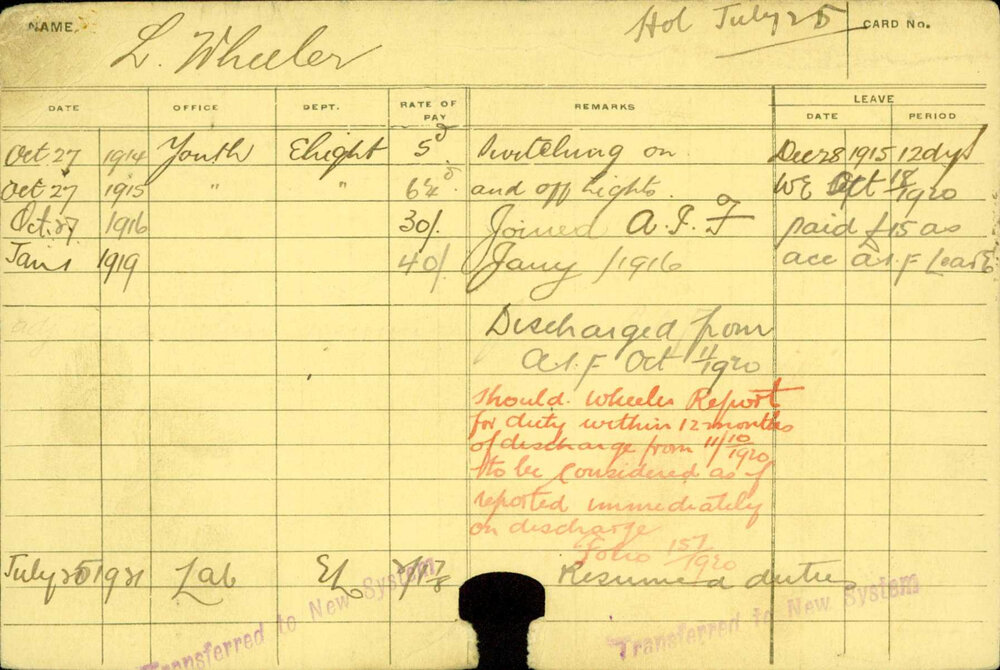 NAME. L. Wheeler Hol July 25 CARD No.
DATE OFFICE DEPT. RATE OF PAY REMARKS LEAVE
DATE PERIOD
Oct 27 1914 Youth Elight 5d Switching on Dec 28 1915 12 dys
Oct 27 1915 " " 6¼d and off Lights. WE Oct 18/1920
Oct. 27 1916 30/. Joined A.I.F paid £15 as
Jan 1 1919 40/. Jany /1916 acc A.I.F Leave
Discharged from
A.I.F Oct 11/1920
Should Wheeler Report
for duty within 12 months
of discharge from 11/10/1920
to be considered as if
reported immediately
on discharge
Folio 157/1920
July 25 1921 Lab EL Resumed duties
Transferred to New System Transferred to New System